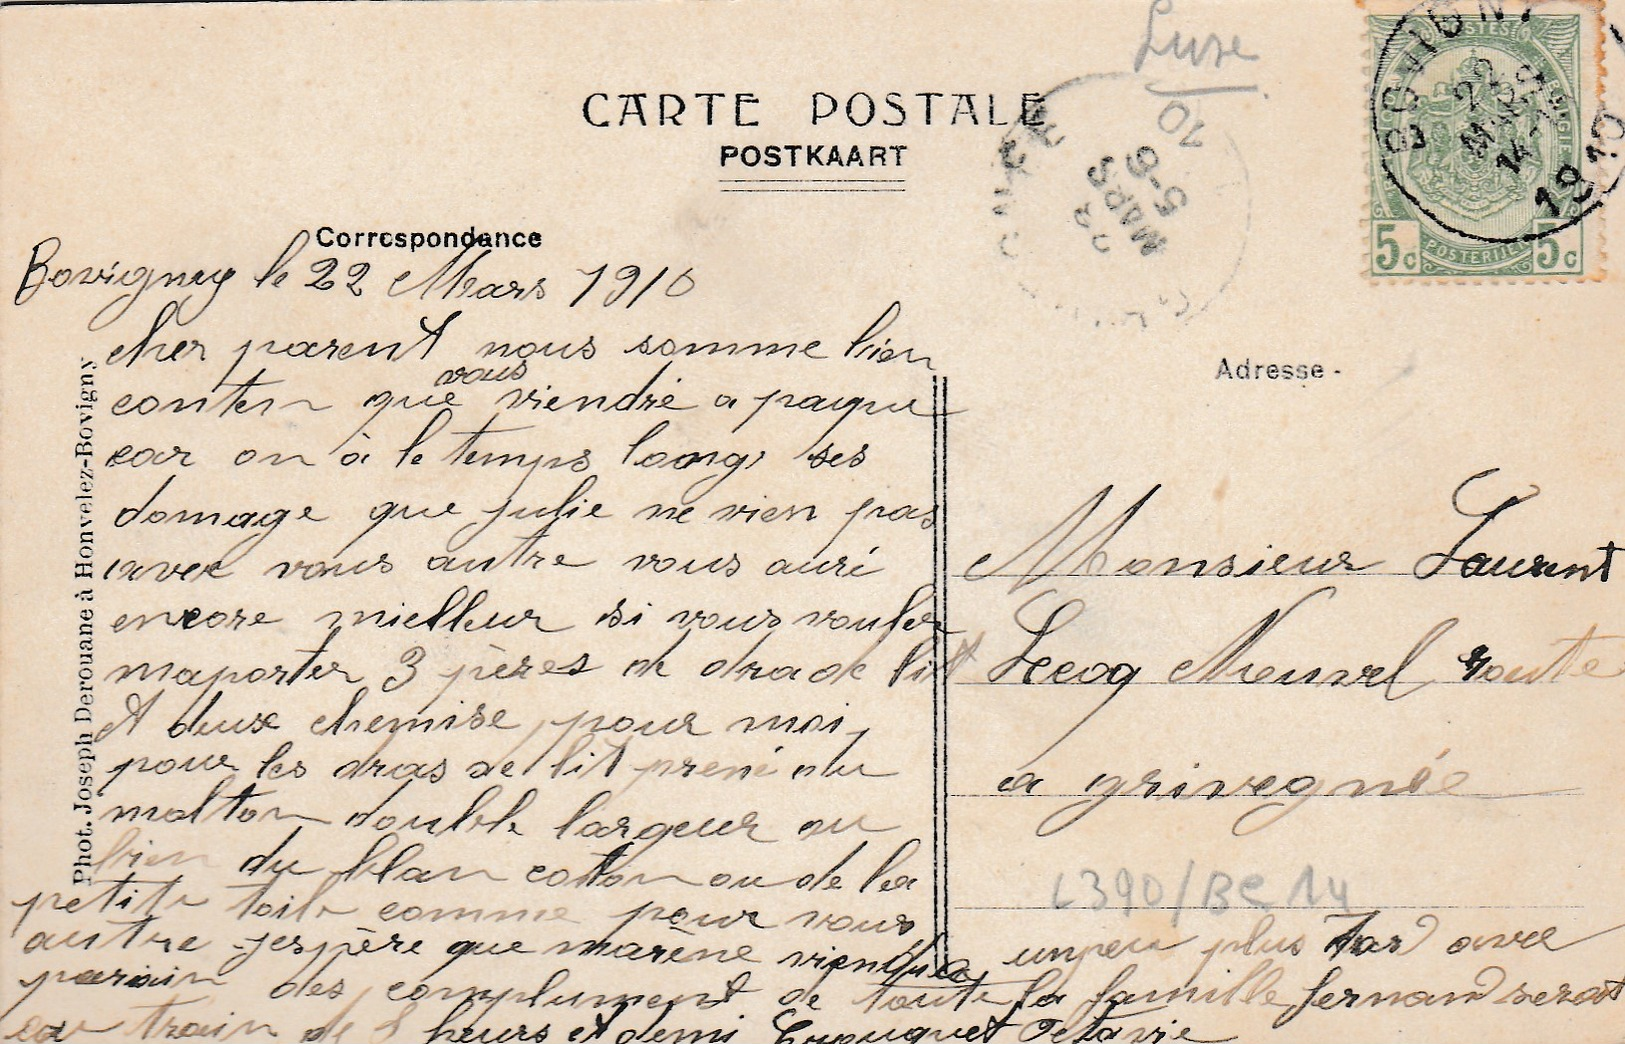 Luxe
CARTE POSTALE
POSTKAART
BOVIGNY
22
MARS
14-15
1910
POSTES
5c POSTERIJEN 5c
22
MARS
5-6
10
Correspondance
Bovigney le 22 Mars 1910
cher parent nous somme bien
vous
conten que viendré a paque
car on à le temps loong ses
domage que julie ne vien pas
avec vous autre vous auré
encore mielleur si vous vouler
maporter 3 pères de dra de lit
et deux chemise pour moi,
pour les dras de lit prené du
molton double largeur ou
bien du blan cotton ou de la
petite toile comme pour vous
autre jespère que marène viendra
parain des complument de toute la famille fernand serat
au train de 8 heurs et demi Octavie
un peu plus tard avec
Phot. Joseph Derouane à Honvelez-Bovigny
Adresse -
Monsieur Laurent
Lecoq Neuvel route
a grivegnée
L390/BC14